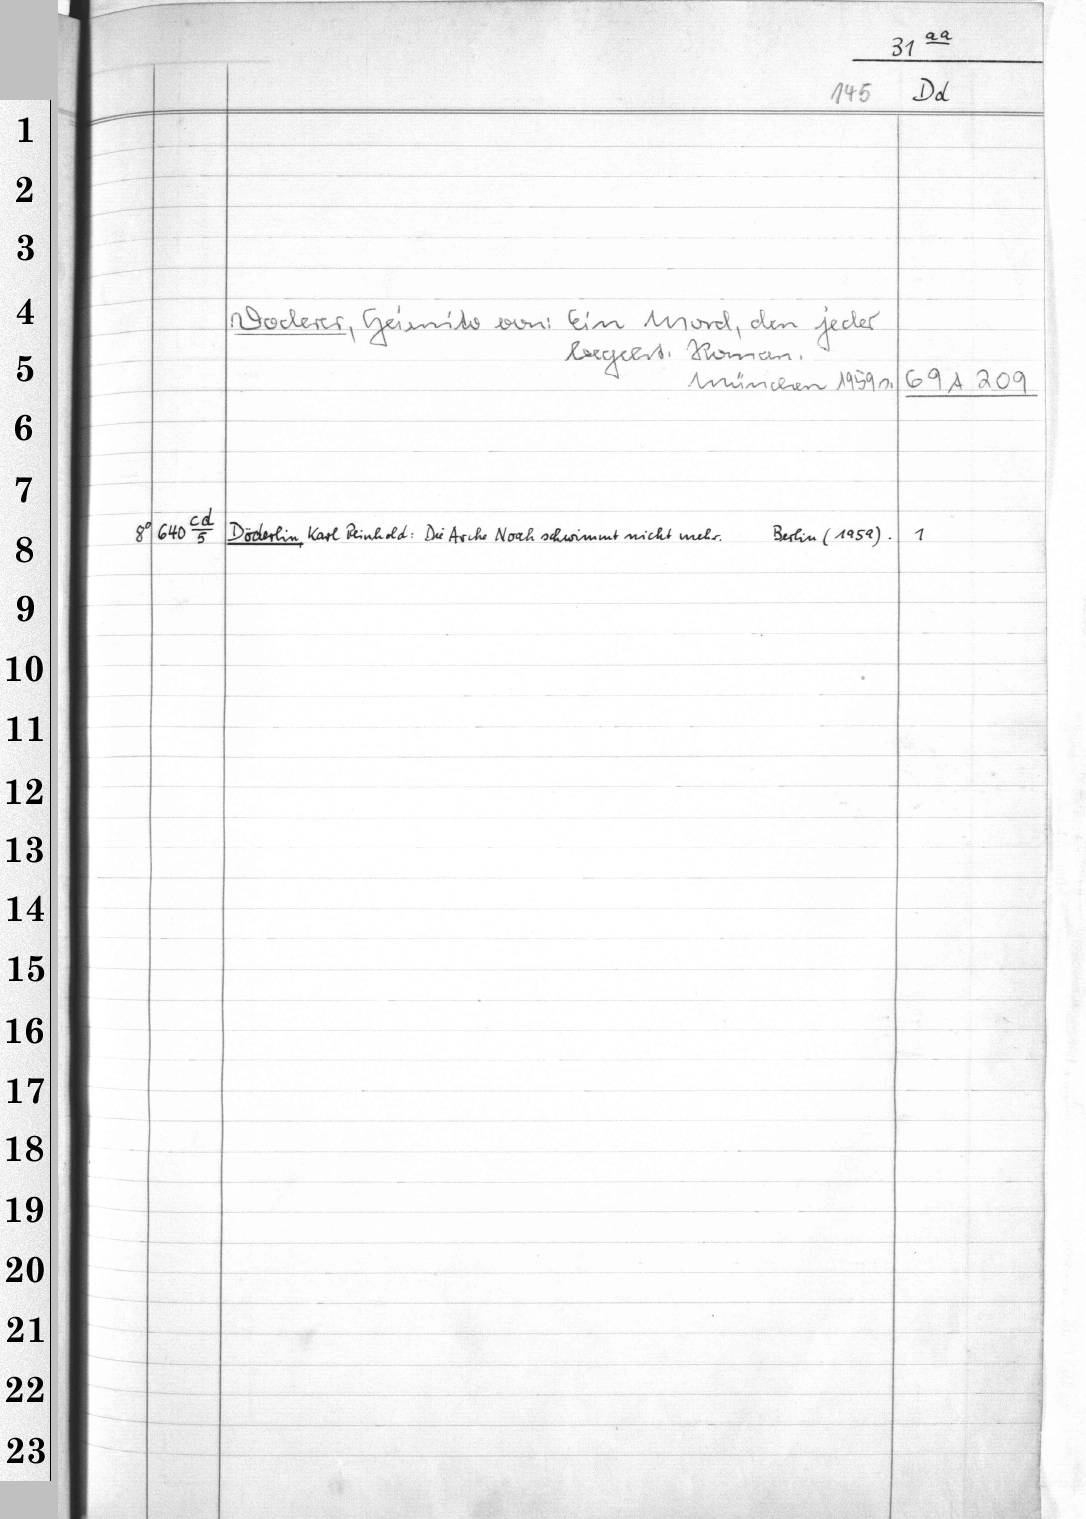 31 aa
145 Dd
1
2
3
4
Doderer, Heimito von: Ein Mord, den jeder
5
begeht. Roman.
München 1959. 69 A 209
6
7
8° 640 cd/5 Döderlin, Karl Reinhold: Die Arche Noah schwimmt nicht mehr. Berlin (1959). 1
8
9
10
11
12
13
14
15
16
17
18
19
20
21
22
23